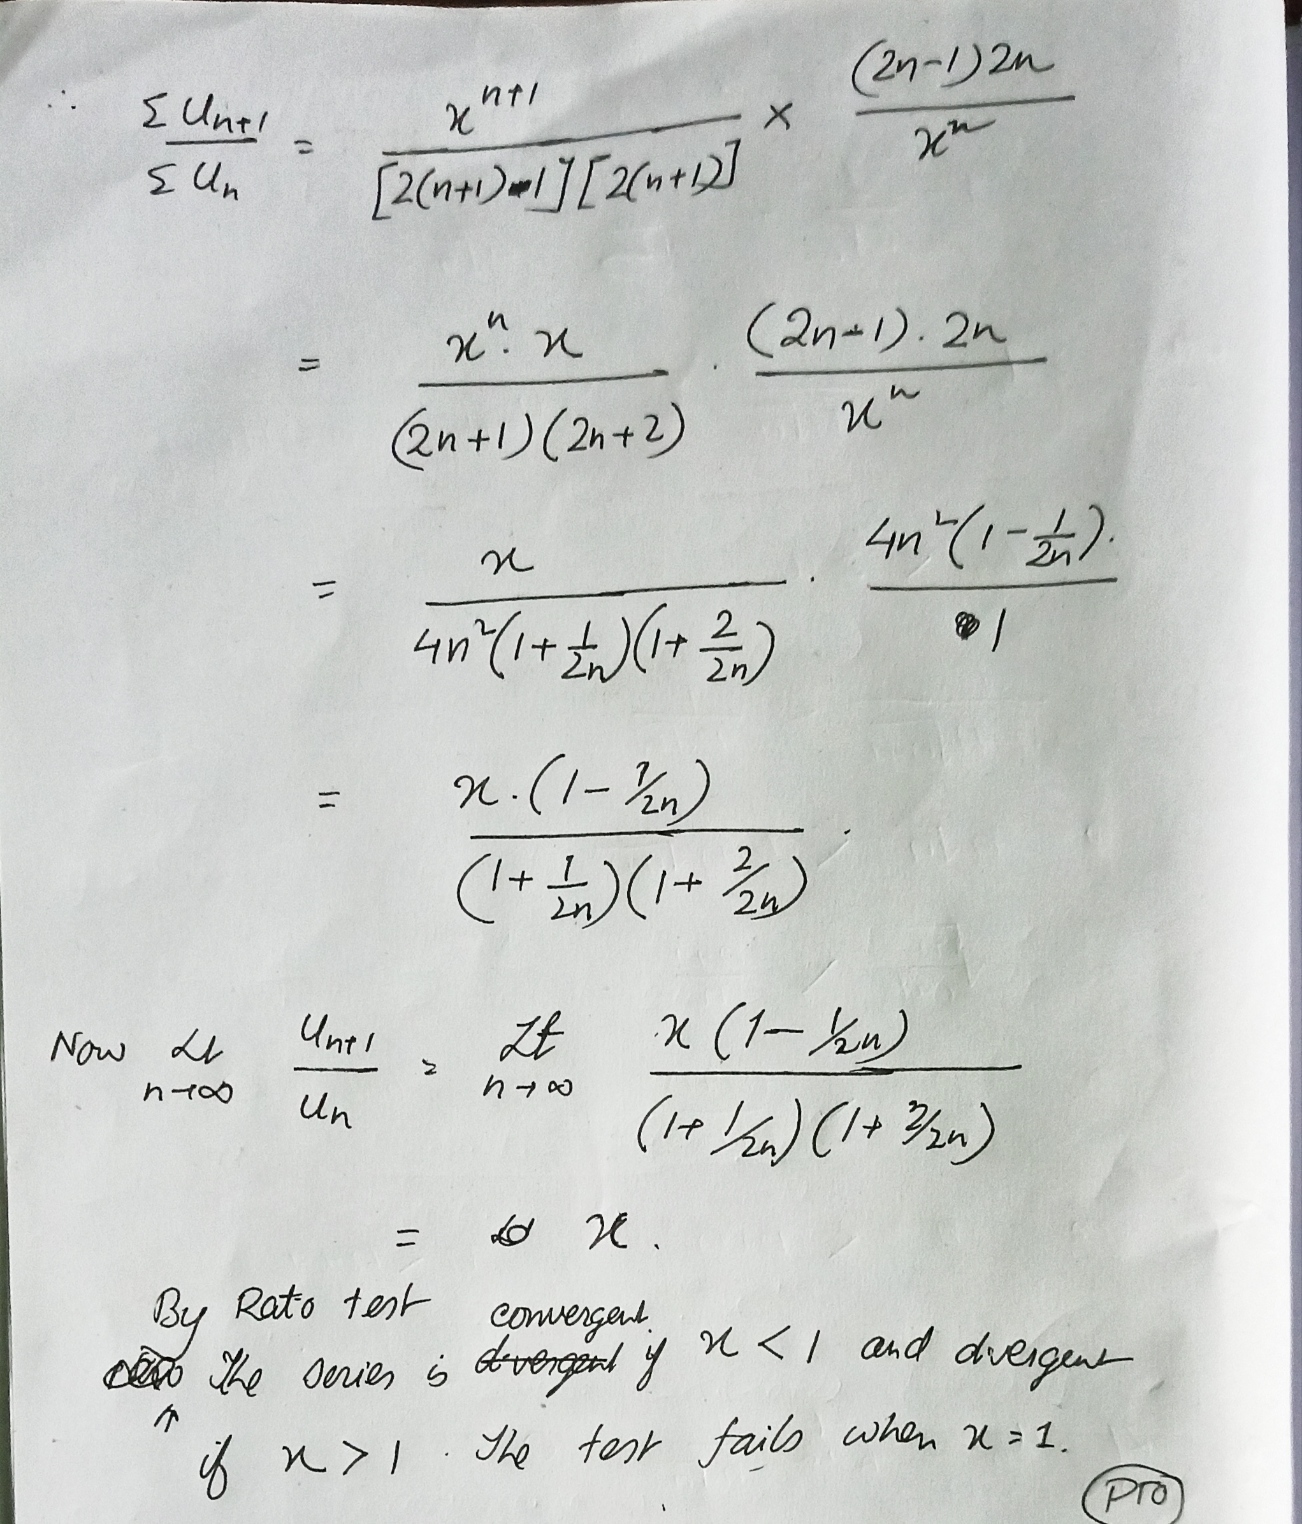 ∴ Σ Un+1 / Σ Un = x^(n+1) / [2(n+1)-1][2(n+1)] × (2n-1)2n / x^n
= x^n . x / (2n+1)(2n+2) . (2n-1). 2n / x^n
= x / 4n²(1+1/2n)(1+2/2n) . 4n²(1-1/2n). / 1
= x.(1-1/2n) / (1+1/2n)(1+2/2n) .
Now Lt n→∞ Un+1 / Un = Lt n→∞ x(1-1/2n) / (1+1/2n)(1+2/2n)
= x.
By Ratio test convergent
The series is divergent if x < 1 and divergent
↑ if x > 1. The test fails when x = 1.
PTO